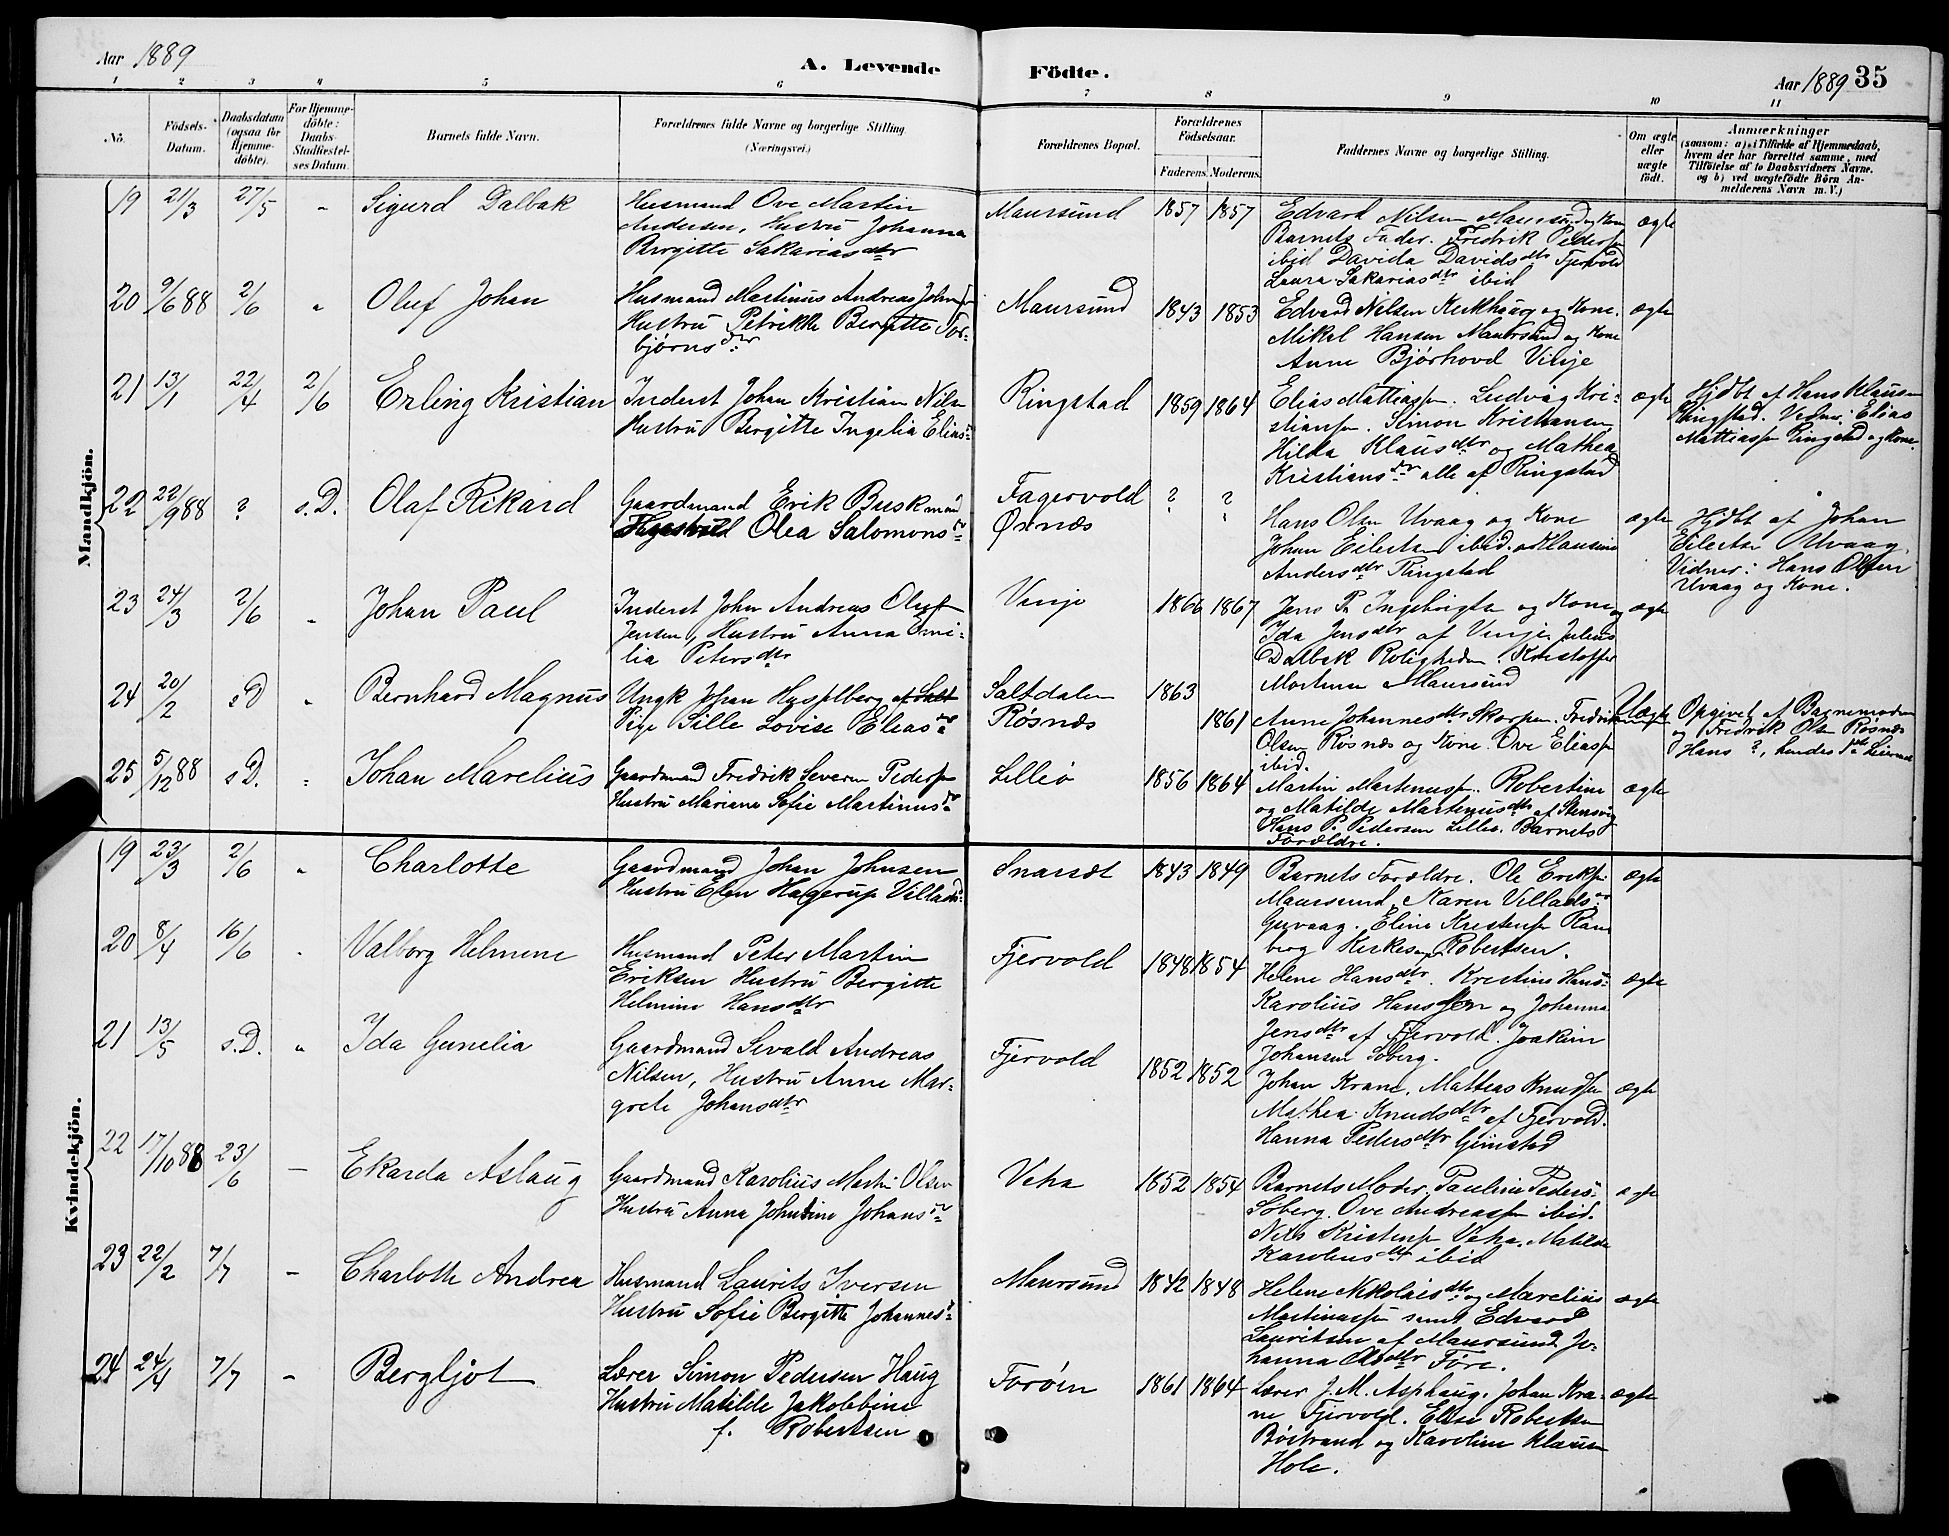 Aar 1889
A. Levende Födte.
Aar 1889 35
1 2 3 4 5 6 7 8 9 10 11
No.
Födsels-
Datum.
Daabsdatum
(ogsaa for
Hjemme-
döbte).
For Hjemme-
döbte:
Daabs-
Stadfæstel-
ses Datum.
Barnets fulde Navn.
Forældrenes fulde Navne og borgerlige Stilling.
(Næringsvei.)
Forældrenes Bopæl.
Forældrenes
Födselsaar.
Faderens. Moderens.
Faddernes Navne og borgerlige Stilling.
Om ægte
eller
uægte
födt.
Anmærkninger
(saasom: a) i Tilfælde af Hjemmedaab,
hvem der har forrettet samme, med
Tilföielse af to Daabsvidners Navne,
og b) ved uægtefödte Börn An-
melderens Navn m. V.)
Mandkjön.
19 21/3 27/5 " Sigurd Dalbak
Husmand Ove Martin
Andersen, Hustru Johanna
Birgitte Sakariasdtr
Maursund 1857 1857
Edvard Nilsen Maursund og Kone
Barnets Fader. Fredrik Peders
ibid Davida Davidsdtr Fjervold
Laura Sakariasdtr ibid
ægte
20 9/6 88 2/6 " Oluf Johan
Husmand Martinus Andreas Johns
Hustru Petrikke Bergitte Tor-
bjørnsdtr
Maursund 1843 1853
Edvard Nilsen Kirkhaug og Kone.
Mikal Hansen Maursund og Kone
Anne Bjørhovd Vinje
ægte
21 13/1 22/4 2/6 Erling Kristian
Inderst Johan Kristian Nils
Hustru Bergitte Ingelia Elias
Ringstad 1859 1864
Elias Mattias. Ludvig Kri-
stians. Simon Kristiansen
Hilda Klausdtr og Mathea
Kristiansdtr alle af Ringstad
ægte
Hjdbt af Hans Klausen
Ringstad. Vidner: Elias
Mattias Ringstad og Kone.
22 22/9 88 ? s.D. Olaf Rikard
Gaardmand Erik Buskmand
Olea Salomons
Fagervold
Ørnæs
? ?
Hans Olsen Uvaag og Kone
Johan Eilertsen ibid. Klausine
Andersdtr Ringstad
ægte
Hjdbt af Johan
Eilertsen Uvaag.
Vidner: Hans Olsen
Uvaag og Kone.
23 24/3 2/6 " Johan Paul
Inderst John Andreas Oluf
Jensen, Hustru Anna Emi-
lia Petersdtr
Vinje 1866 1867
Jens P. Ingebrigts og Kone og
Ida Jensdtr af Vinje. Julius
Dalbak Roligheden. Kristoffer
Mortensen Maursund
ægte
24 20/2 s.D " Bernhard Magnus
Ungk Johan
Pige Sille Lovise Elias
Saltdalen
Røsnæs
1863
1861
Anne Johannesdtr Skorpen. Fredrik
Olsen Røsnæs og Kone. Ove Elias
ibid.
Uægte
Opgivet af Barnemoderen
og Fredrik Olsen Røsnæs
Hans ?, hendes 1ste Leiermaal
25 5/12 88 s.D. " Johan Marelius
Gaardmand Fredrik Severin Peders
Hustru Mariane Sofie Martinus
Lilleø 1856 1864
Martin Martinus. Robertine
og Matilde Martinusdtr af Stensvig
Hans P. Pedersen Lilleø. Barnets
Forældre.
ægte
Kvindekjön.
19 23/3 2/6 " Charlotte
Gaardmand Johan Johnsen
Hustru Elen Hagerup Villads
Snarset 1843 1849
Barnets Forældre. Ole Eriks
Maursund, Karen Villads
Guvaag. Eline Kristens Ram
berg Kirkesag Robertsen.
ægte
20 8/4 16/6 " Valborg Helmine
Husmand Peter Martin
Eriksen Hustru Bergitte
Helmine Hansdtr
Fjervold 1848 1854
Helene Hansdtr. Kristine Hans
Karolius Hanssen og Johanna
Jensdtr af Fjervold. Joakim
Johansen Soberg.
ægte
21 13/5 s.D. " Ida Gunelia
Gaardmand Sivald Andreas
Nilsen, Hustru Anne Mar-
grete Johansdtr
Fjervold 1852 1852
Johan Krane, Mattias Knudsen
Mathea Knudsdtr af Fjervold.
Hanna Pedersdtr Gimstad
ægte
22 17/10 88 23/6 — Ekarda Aslaug
Gaardmand Karolius Martin Olsen
Hustru Anna Johnsine Johans
Veha 1852 1854
Barnets Moder. Pauline Peders
Soberg. Ove Andreas ibid.
Nils Kristens Veha. Matilde
Karoliusdtr ibid
ægte
23 22/2 7/7 — Charlotte Andrea
Husmand Laurits Iversen
Hustru Sofie Bergitte Johannes
Maursund 1842 1848
Helene Nikolaisdtr og Marelius
Martinus samt Edvard
Lauritsen af Maursund. Jo-
hanna Olsdtr Føre.
ægte
24 24/4 7/7 — Bergljot
Lærer Simon Pedersen Haug
Hustru Matilde Jakobbine
f. Robertsen
Forøen 1861 1864
Lærer J. M. Asphaug. Johan Kra-
ne Fjervold. Elise Robertsen
Bøstrand og Karoline Klausen
Hole.
ægte